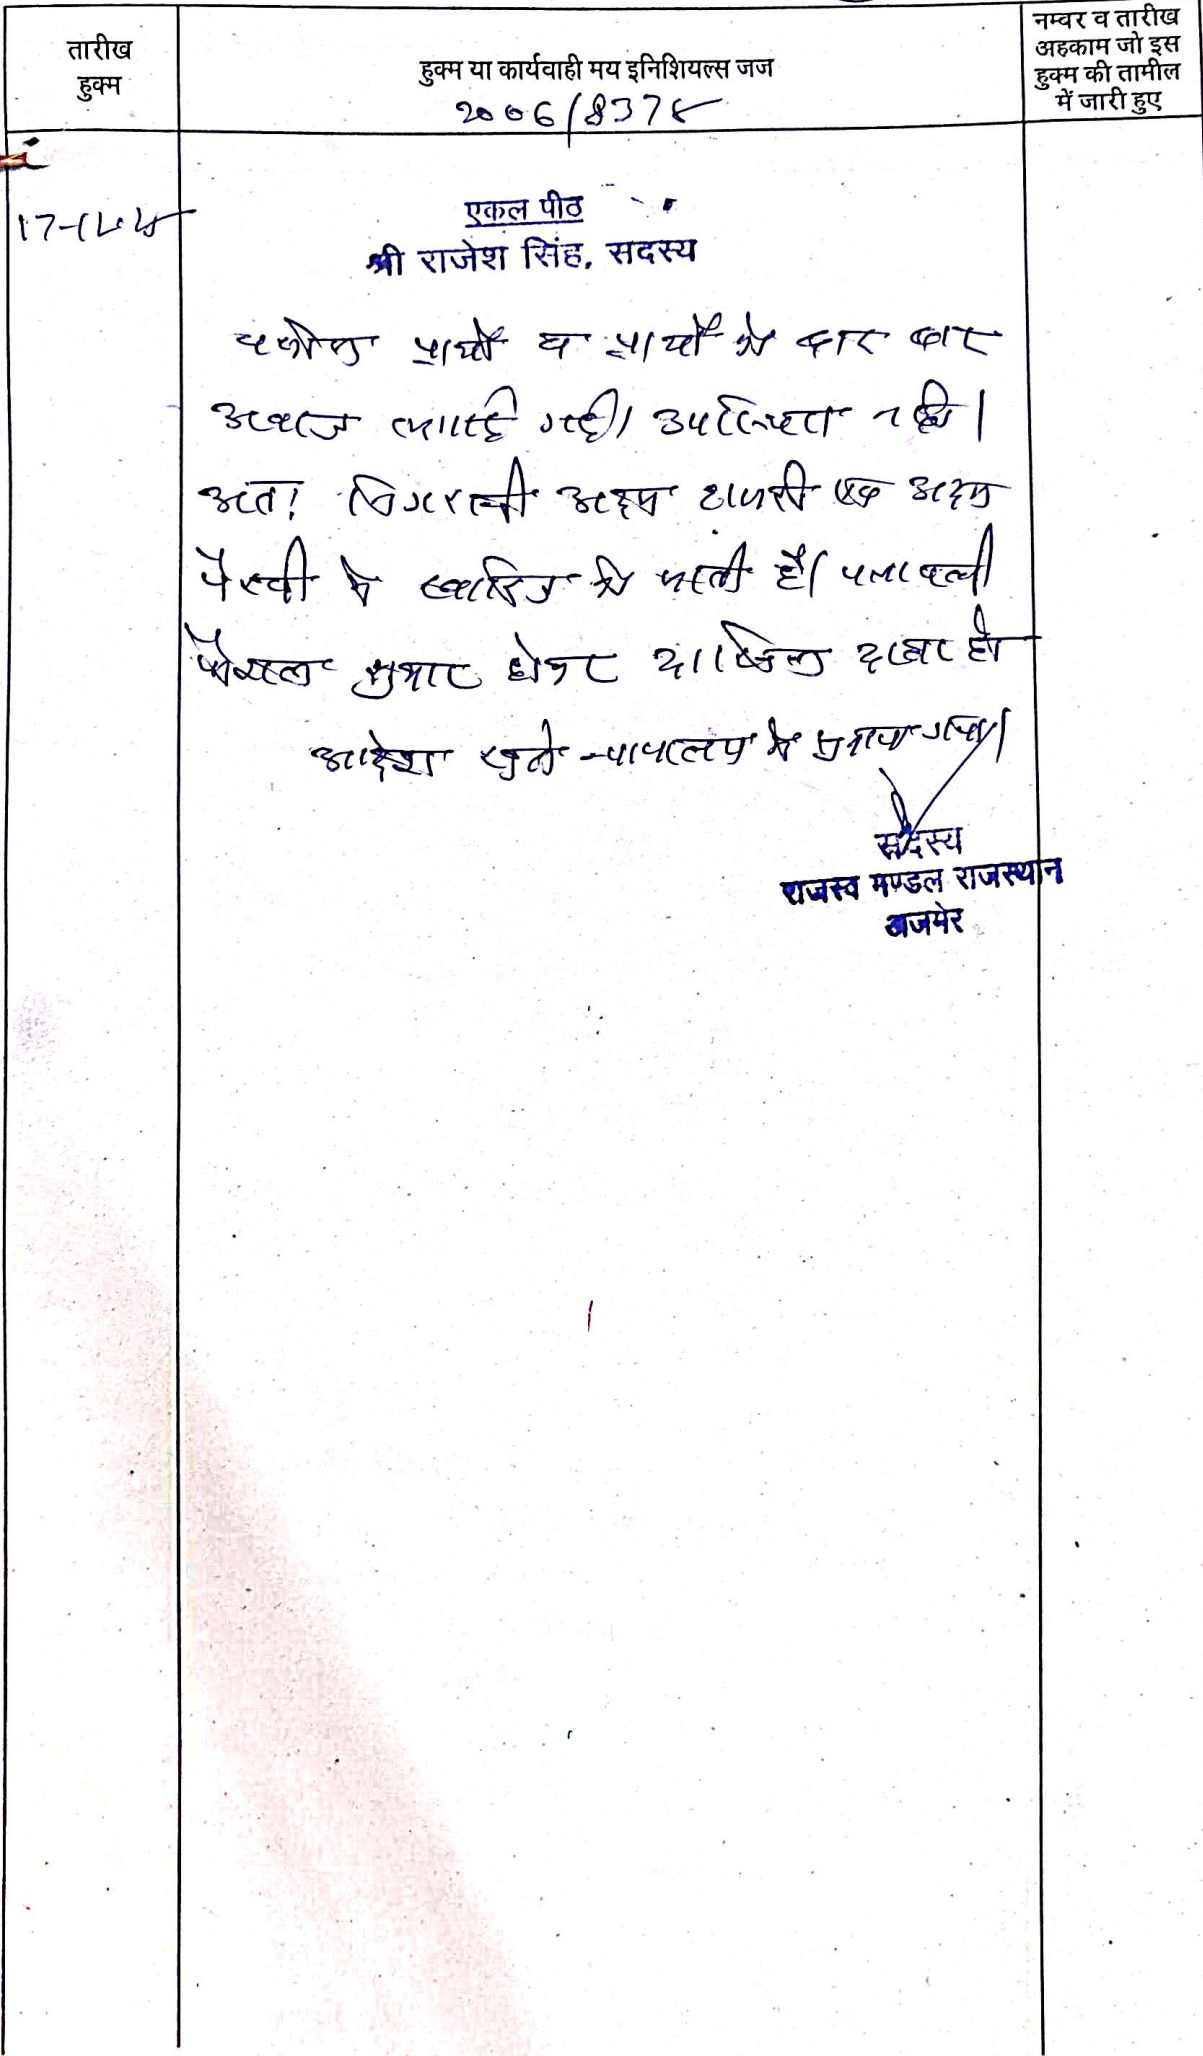 तारीख
हुक्म
हुक्म या कार्यवाही मय इनिशियल्स जज
2006/8378
नम्बर व तारीख
अहकाम जो इस
हुक्म की तामील
में जारी हुए
एकल पीठ
श्री राजेश सिंह, सदस्य
वकील प्रार्थी व प्रार्थी को बार बार
आवाज लगाई गई। उपस्थित नहीं।
अतः निगरानी अदम हाजरी एवं अदम
पैरवी में खारिज की जाती है। पत्रावली
फैसल शुमार होकर दाखिल दफ्तर हो
आदेश खुले न्यायालय में सुनाया गया।
सदस्य
राजस्व मण्डल राजस्थान
अजमेर